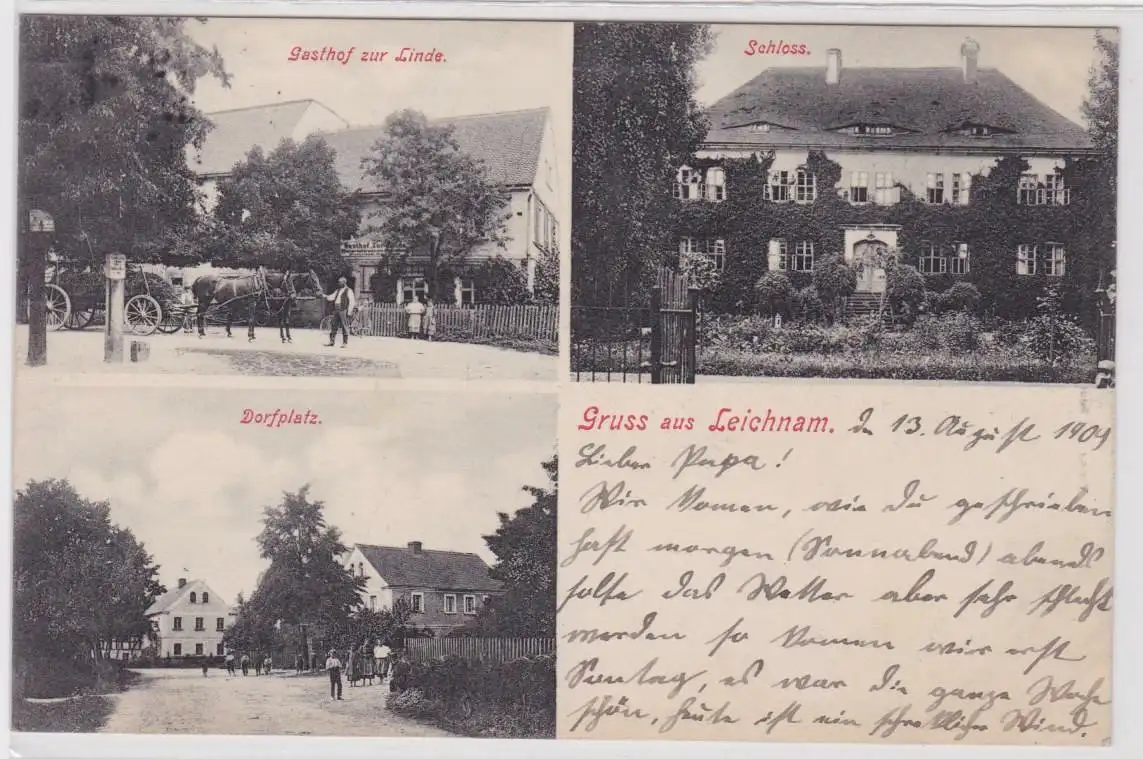 Gasthof zur Linde.
Schloss.
Gasthof
Dorfplatz.
Gruss aus Leichnam. 13. August 1909
Lieber Papa!
Wir komen, wie du geschrieben
hast morgen (Sonnabend) abends
solte das Wetter aber sehr schlecht
werden so komen wir erst
Sontag, es war die ganze Woche
schön, heute ist ein schreklicher Wind.